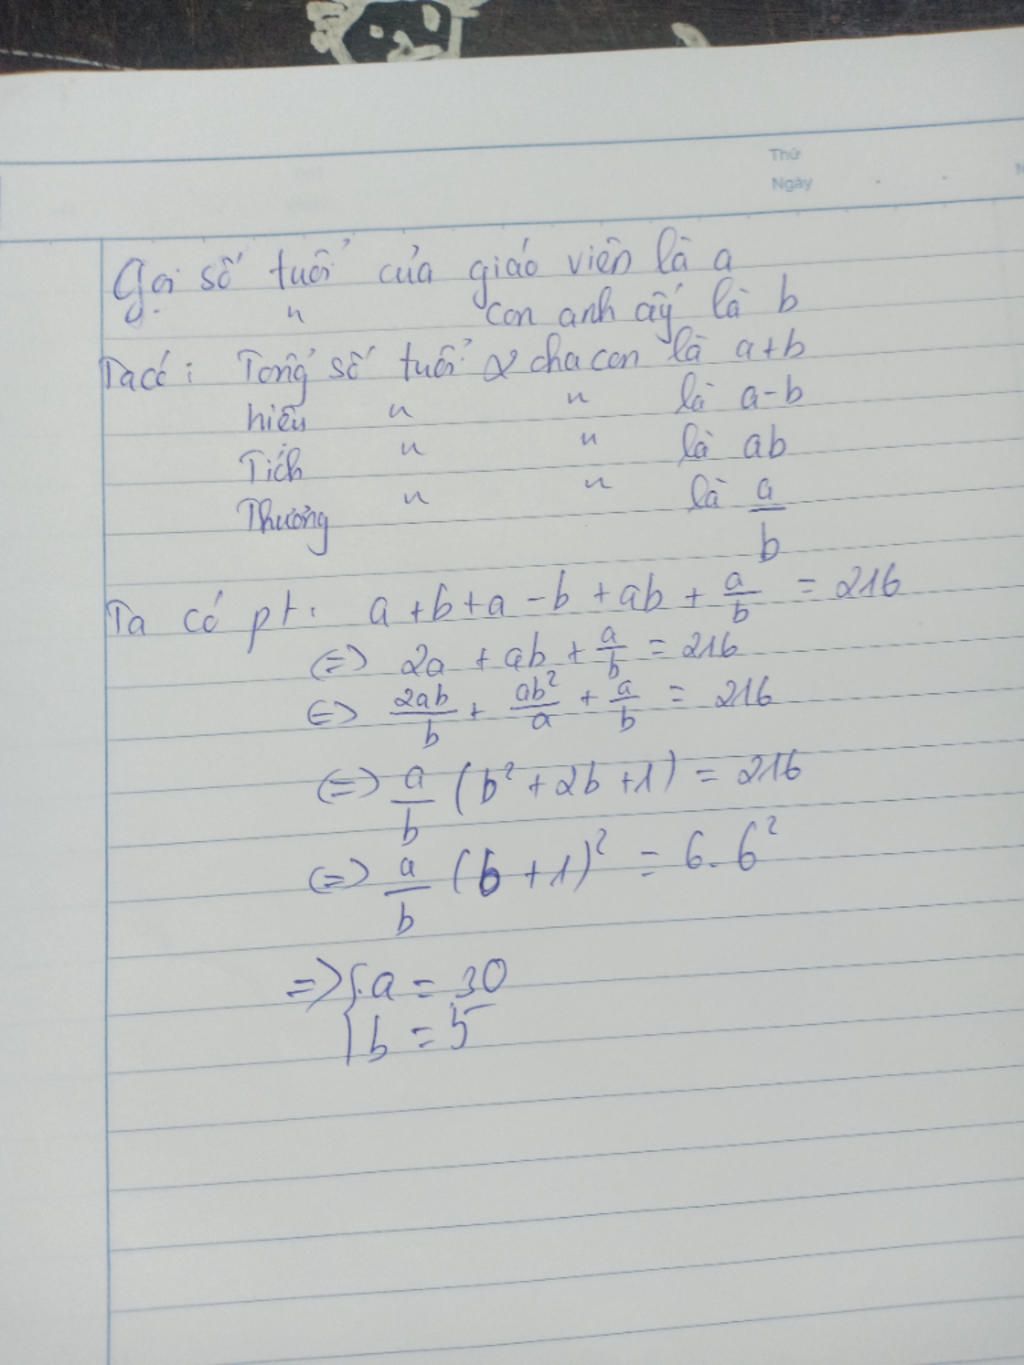 Thứ
Ngày
Gọi số tuổi của giáo viên là a
" con anh ấy là b
Ta có: Tổng số tuổi 2 cha con là a+b
hiệu " " là a-b
Tích " " là ab
Thương " " là a/b
Ta có pt: a+b+a-b+ab+a/b = 216
(=) 2a + ab + a/b = 216
(=) 2ab/b + ab²/a + a/b = 216
(=) a/b (b² + 2b + 1) = 216
(=) a/b (b + 1)² = 6.6²
=> { a = 30
{ b = 5